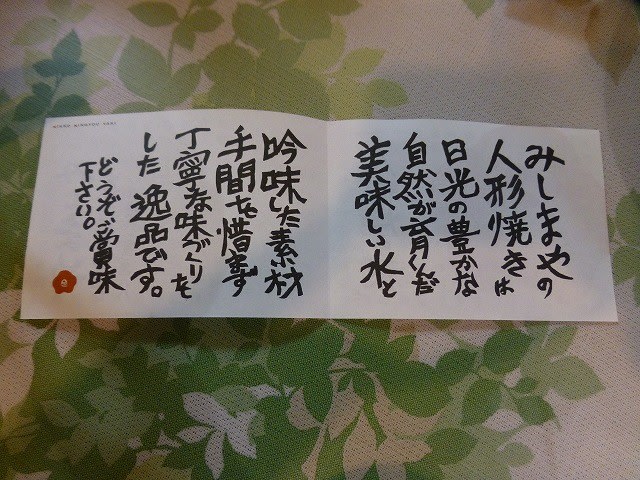 みしまやの
人形焼きは
日光の豊かな
自然が育くんだ
美味しい水と
吟味した素材
手間を惜まず
丁寧な味づくりを
した逸品です。
どうぞご賞味
下さい。